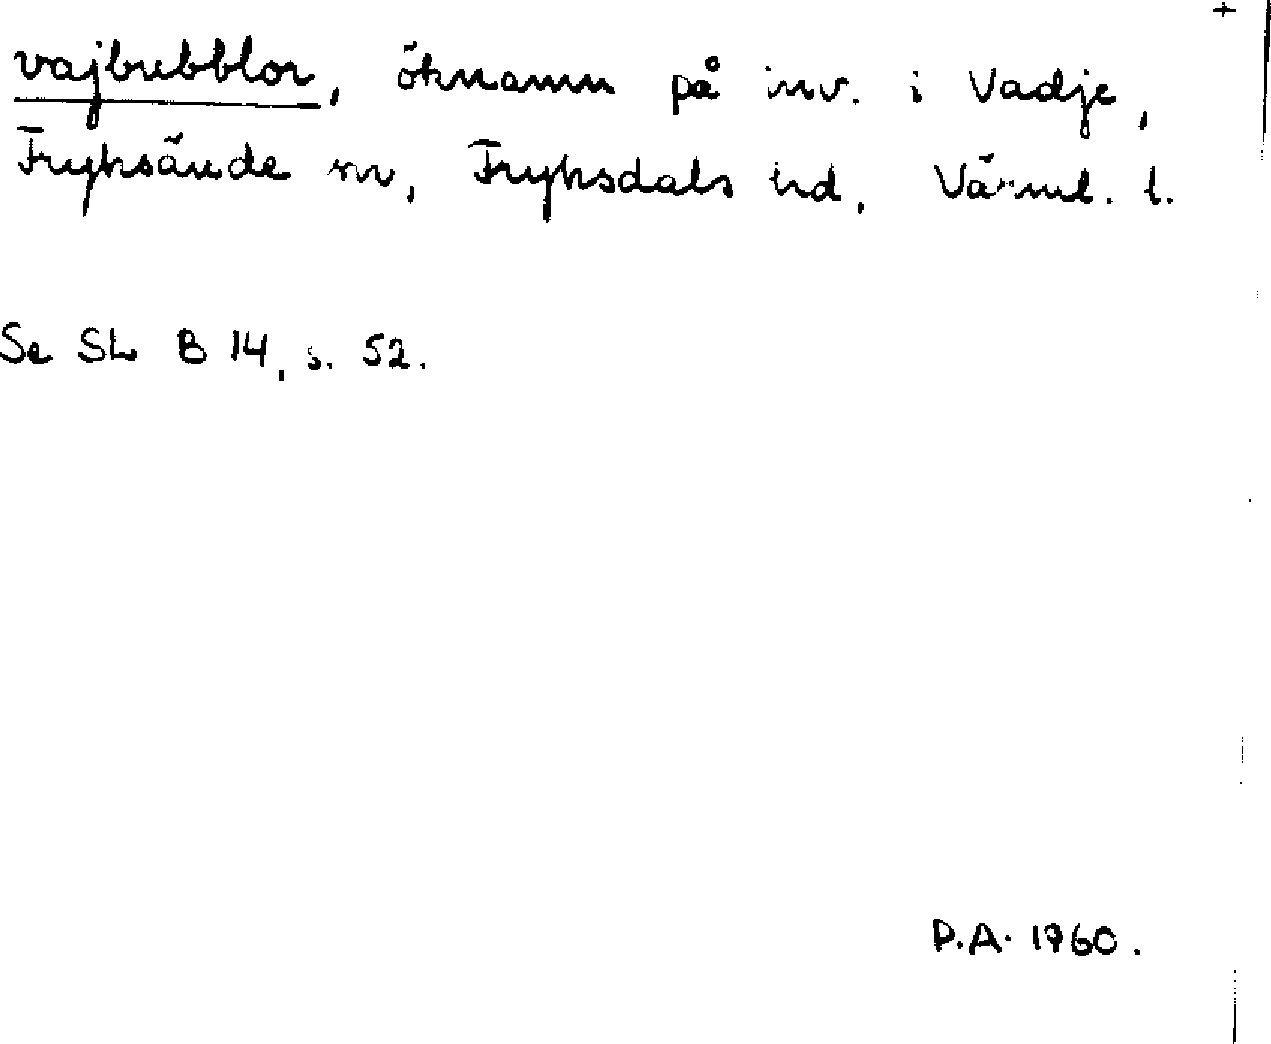 vajbubblor, öknamn på inv. i Vadje,
Fryksände sn, Fryksdals hd, Värml. l.
Se SL B 14, s. 52.
D.A. 1960.